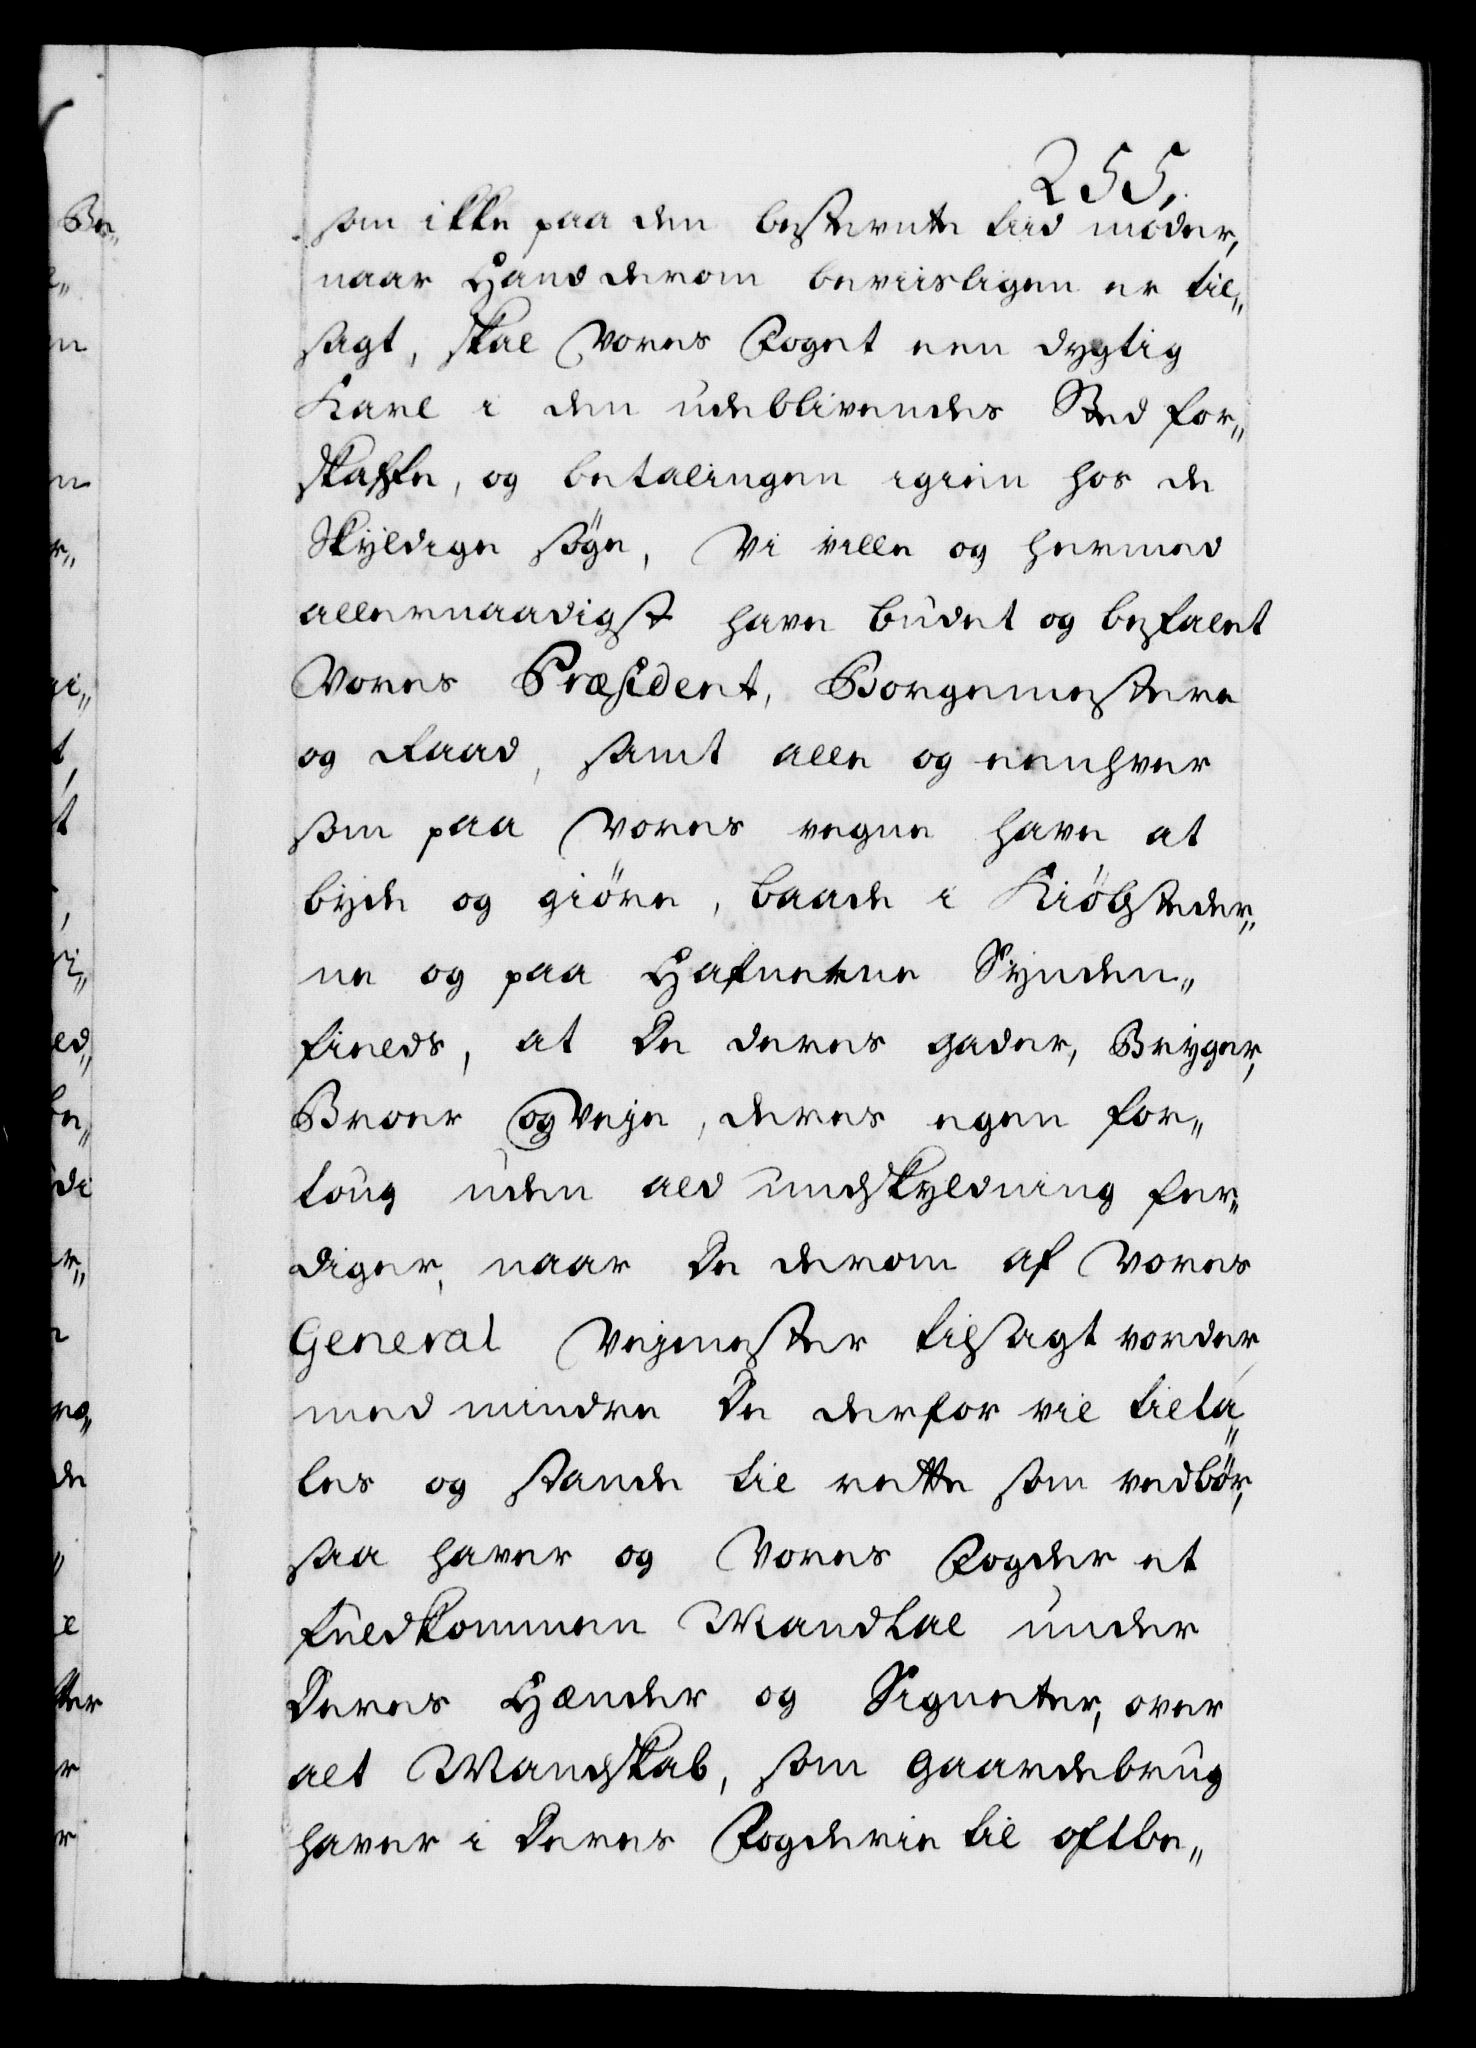 255.
som ikke paa den bestemte tiid möder,
naar Hand derom beviisligen er til„
sagt, skal Vores Foget een dygtig
Karl i den udeblivendes Sted for„
skaffe, og betalingen igien hos de
Skyldige söge, Vi ville og hermed
allernaadigst have budet og befalet
Vores Præsident, Borgemestere
og Raad, samt alle og eenhver
som paa Vores vegne have at
byde og giöre, baade i Kiöbsteder„
ne og paa Hafnerne Synden„
fields, at De deres gader, Brygger,
Broer og Veje, deres egen for„
toug uden ald undskyldning fer„
diger, naar De derom af Vores
General Vejmester tilsagt vorder
med mindre De derfor vil tilta„
les og stande til rette som vedbör,
saa haver og Vores Fogder et
fuldkommen Mandtal under
Deres Hænder og Signeter, over
alt Mandskab, som gaardebrug
haver i Deres Fogderie til oftbe„